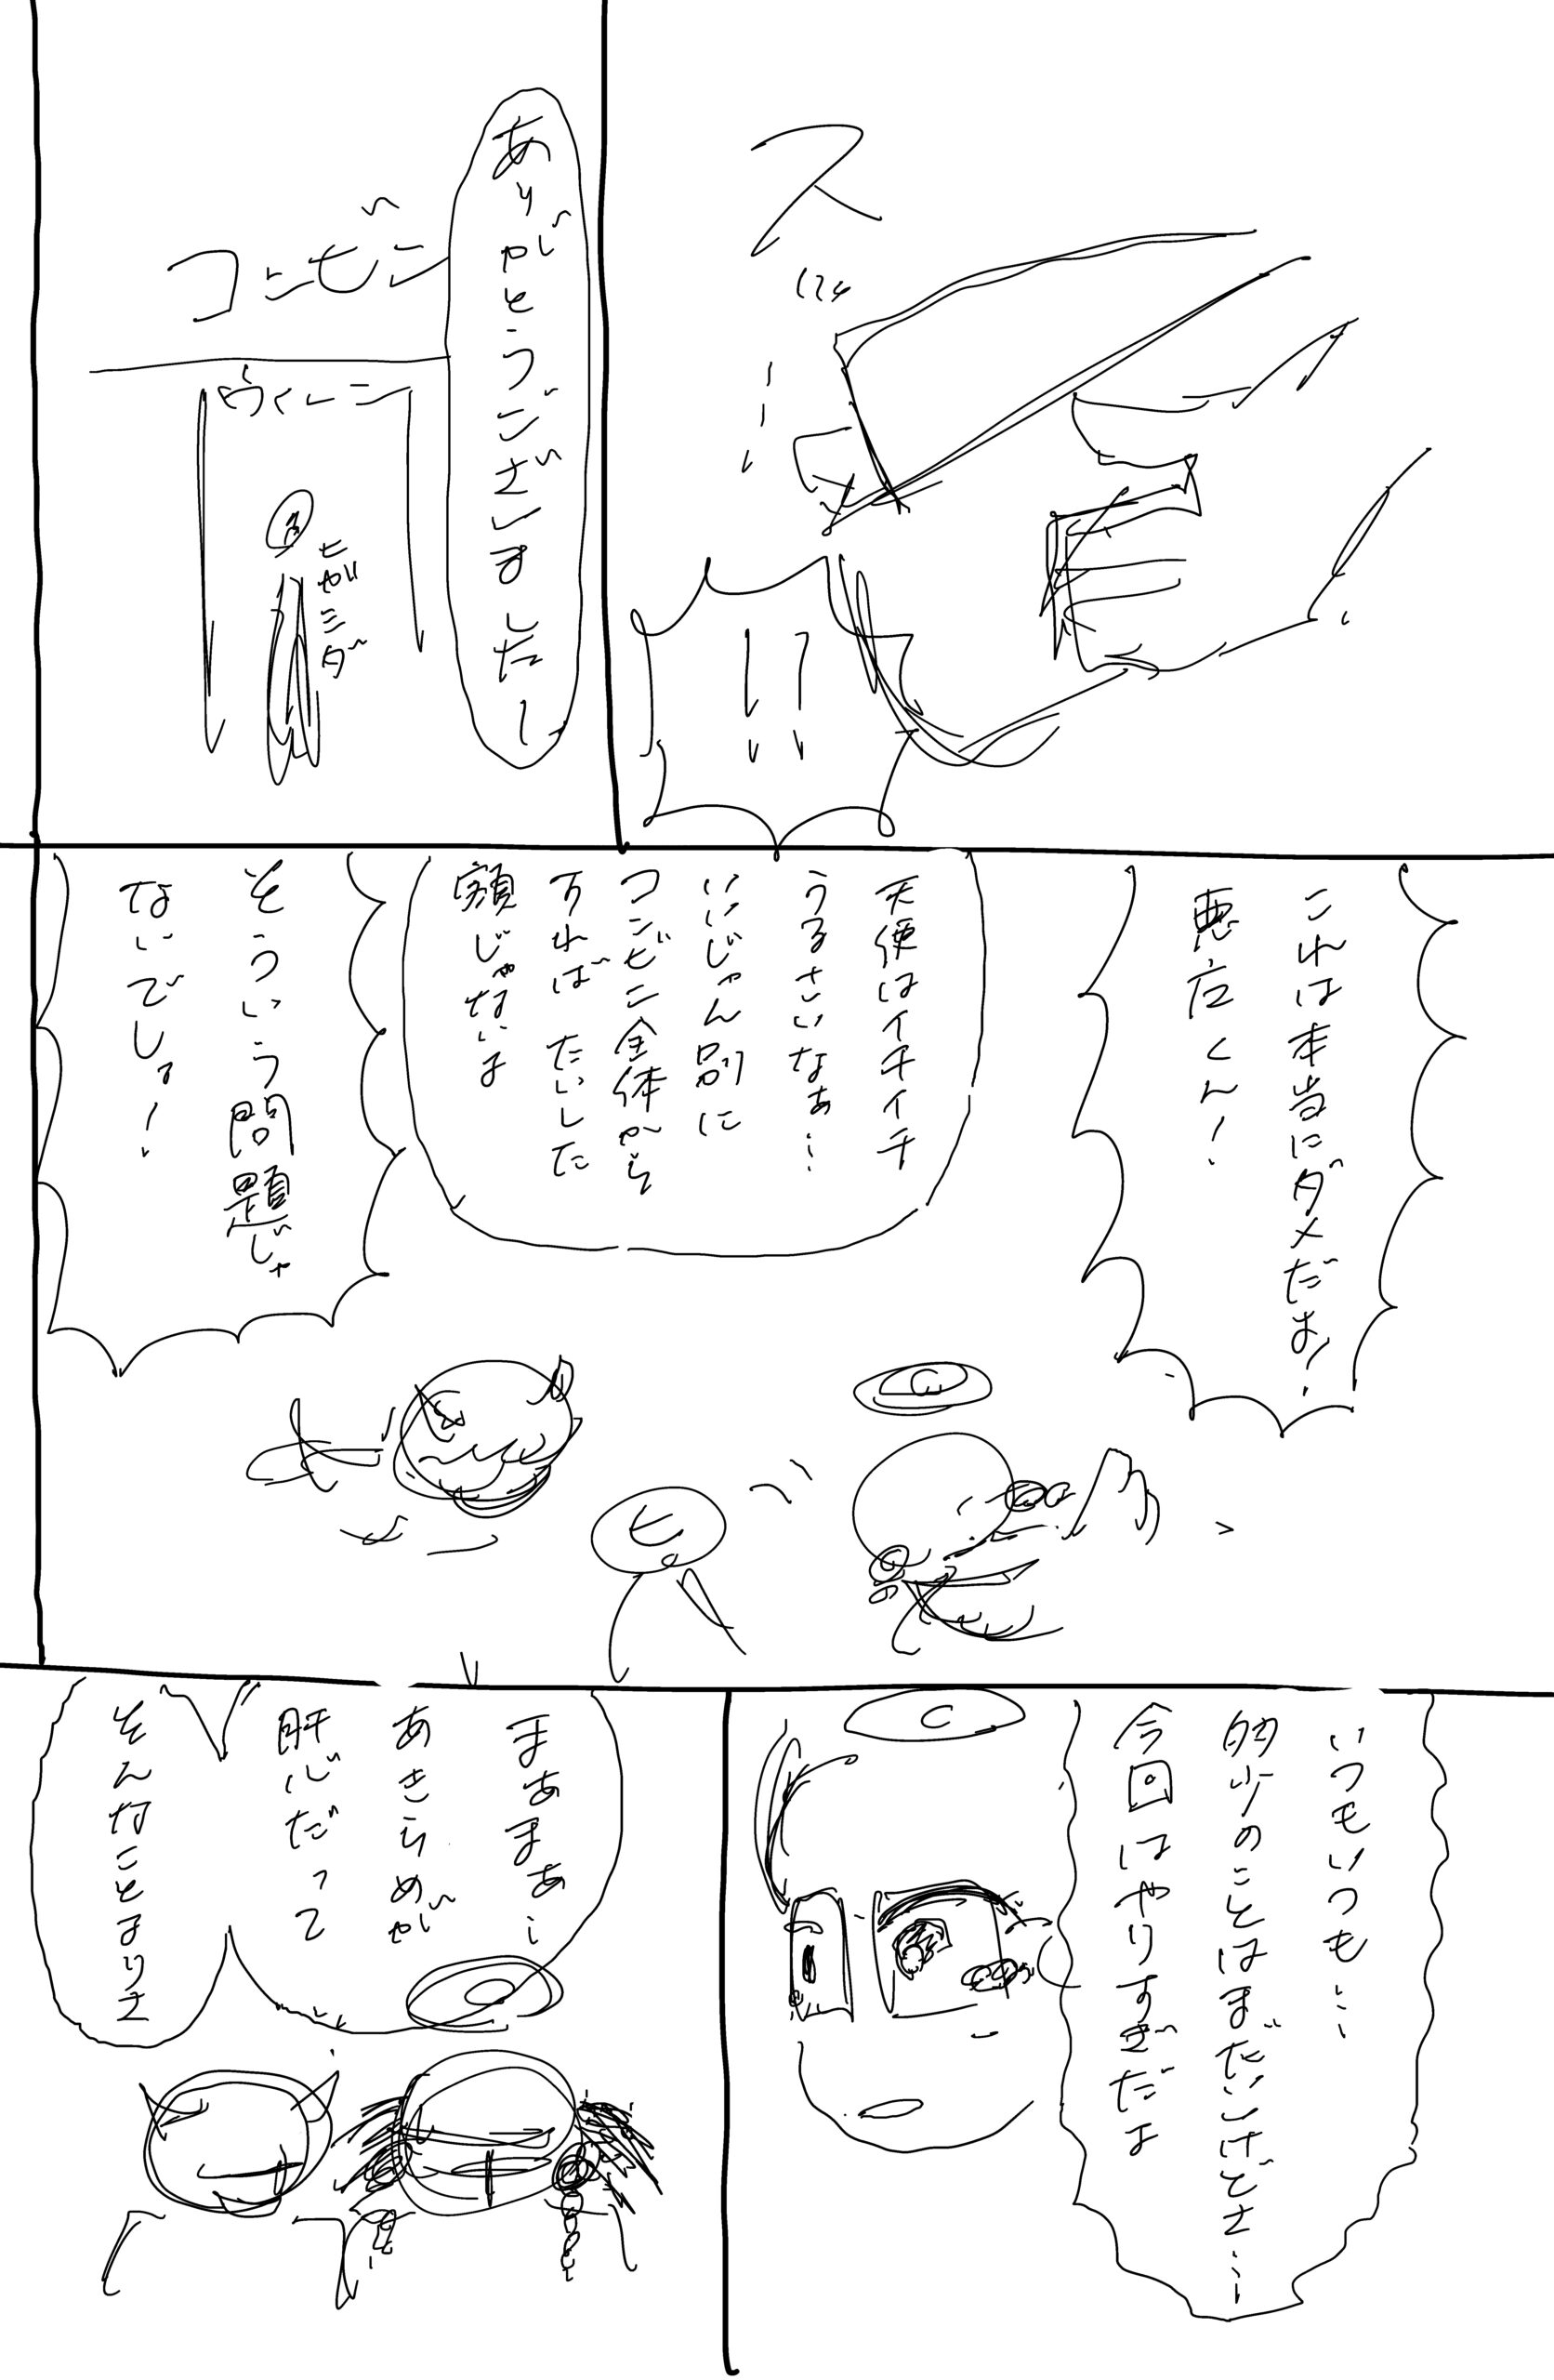 ス
!!
ありがとうございましたー
コンビニ
ウィーン
これは本当にダメだよ!
悪広くん!
天使はイチイチ
うるさいなぁ…
いいじゃん別に
コンビニ全体から
すれば たいした
額じゃないよ
そういう問題じゃ
ないでしょー!
ヒ
いつもいつも…
多少のことはまだいいけどさ…
今回はやりすぎだよ
まあまあ
あきらめが
肝心だって
そんなことよりさ